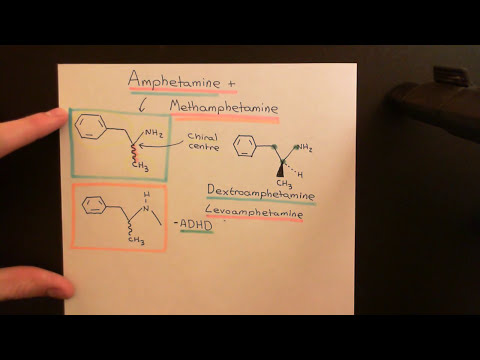 Amphetamine +
Methamphetamine
NH₂
Chiral
centre
CH₃
NH₂
H
CH₃
Dextroamphetamine
Levoamphetamine
H
N
CH₃
-ADHD